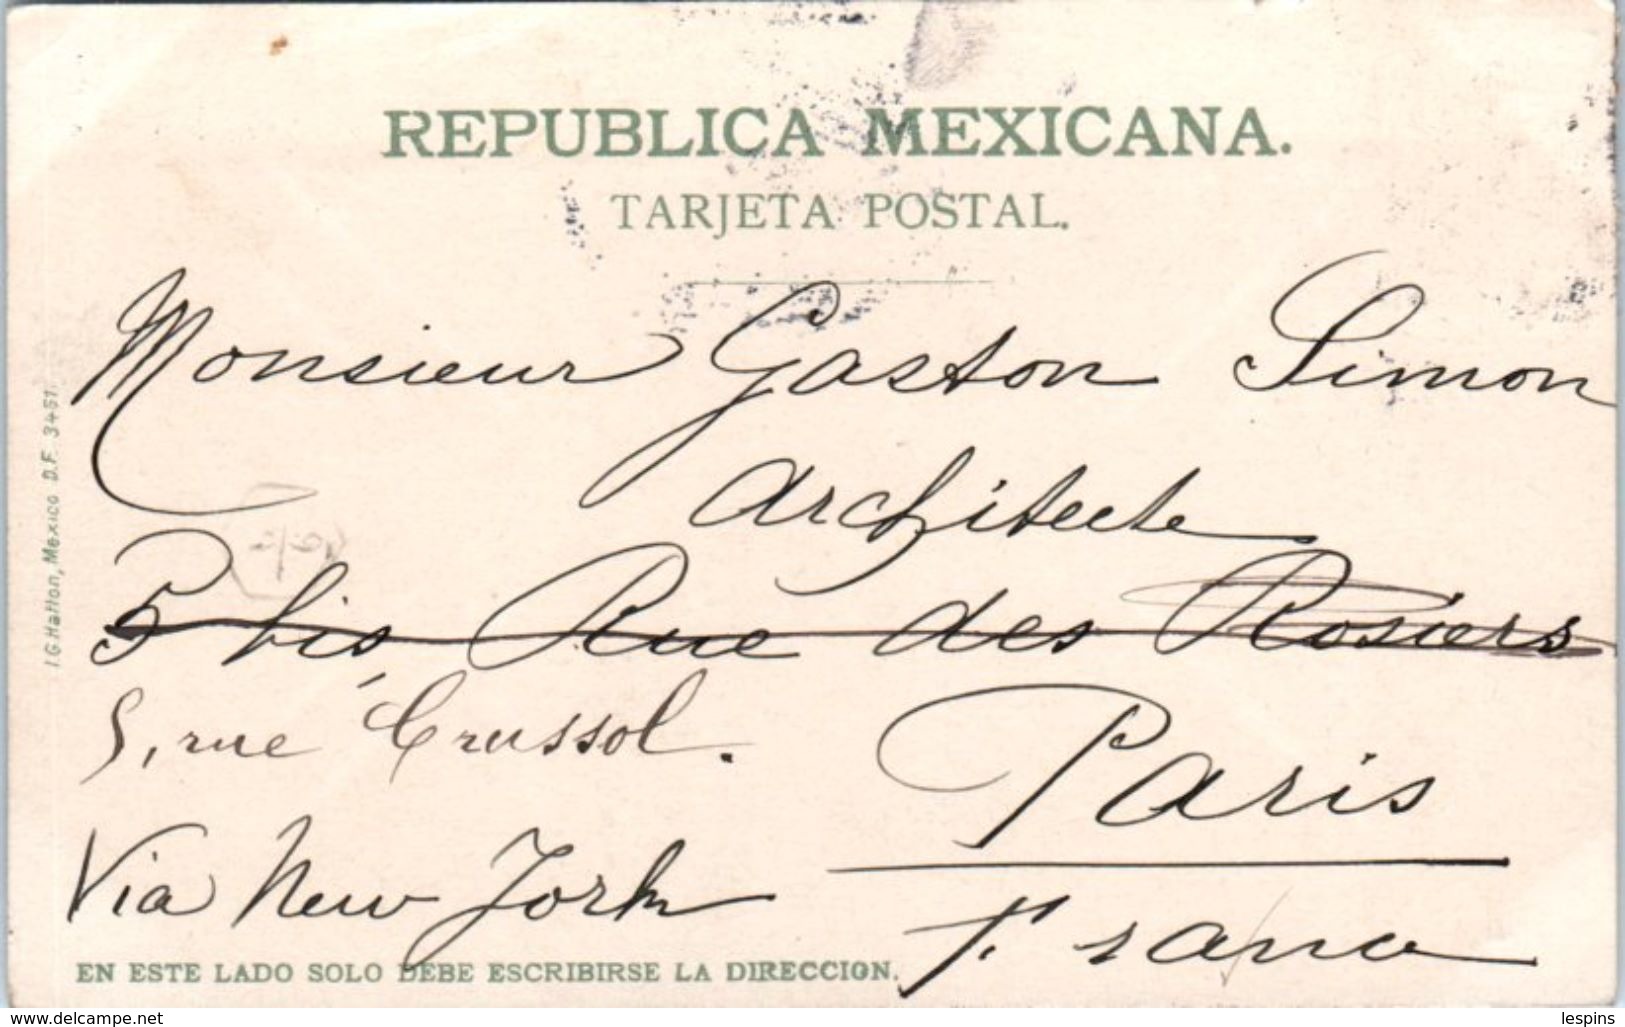 REPUBLICA MEXICANA.
TARJETA POSTAL.
Monsieur Gaston Simon
Architecte
5 bis, Rue des Rosiers
5, rue Crussol.
Paris
Via New York
France
EN ESTE LADO SOLO DEBE ESCRIBIRSE LA DIRECCION.
I.G. Hatton, Mexico D.F. 3451.
www.delcampe.net
lespins